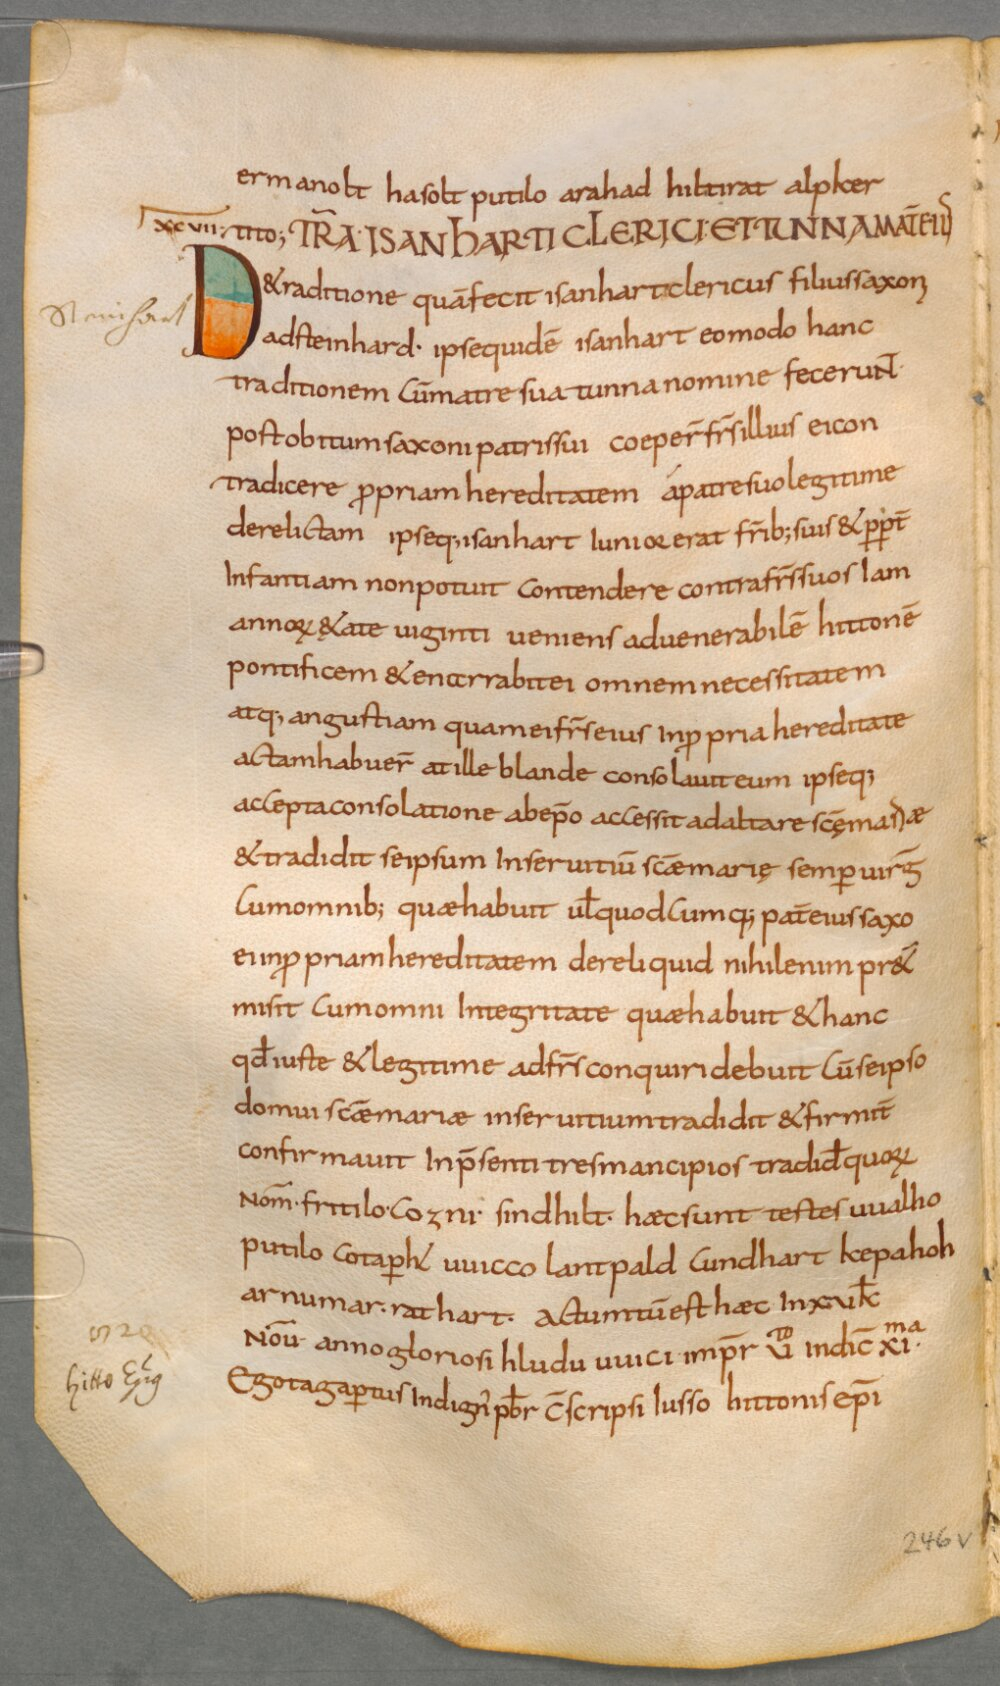 ermanolt hasolt putilo arahad hiltirat alpker
xcvii; tito; TR̄A·ISANHARTI CLERICI·ET TUNNA MAT̄ EIUS
D&raditione quā fecit isanhart clericus filius saxoni
Steinhart
ad steinhard· ipse quidē isanhart eo modo hanc
traditionem Cū matre sua tunna nomine feceruNT·
post obitum saxoni patris sui coeper̄ fr̄s illius ei con
tradicere ꝓpriam hereditatem a patre suo legitime
derelictam ipseq; isanhart Iunior erat fr̄ib; suis & ꝓpt̄
Infantiam non potuit Contendere contra fr̄s suos Iam
annoꝝ &ate uiginti ueniens ad uenerabilē hittonē
pontificem & enarrabit ei omnem necessitatem
atq; angustiam quam ei fr̄s eius In ꝓpria hereditate
actam habuer̄ at ille blande consolauit eum ipseq;
accepta consolatione ab ep̄o accessit ad altare scę̄ mariæ
& tradidit se ipsum In seruitiū scǣ marię semꝑ uirḡ
Cum omnib; quæ habuit ul̄ quodCumq; pat̄ eius saxo
ei in ꝓpriam hereditatem dereliquid nihil enim pr&
misit Cum omni Integritate quæ habuit & hanc
qd̄ iuste & legitime ad fr̄s conquiri debuit Cū se ipso
domui scǣ mariæ in seruitium tradidit & firmit̄
confirmauit In p̄senti tres mancipios tradid̄ quoꝝ
Nom̄· fritilo· Cozni· sindhilt· hæc sunt testes uualho
putilo Cotaꝑht uuicco lantpald Cundhart kepahoh
arnumar· rathart· actum tū est hæc In xvi kl̄
Noū· anno gloriosi hluduuuici imp̄r ui to indic̄ xi ma·
Ego tagaꝑtus Indign̄ pb̄r c̄scripsi Iusso hittonis ep̄i
820
hitto Ep̄g
246v